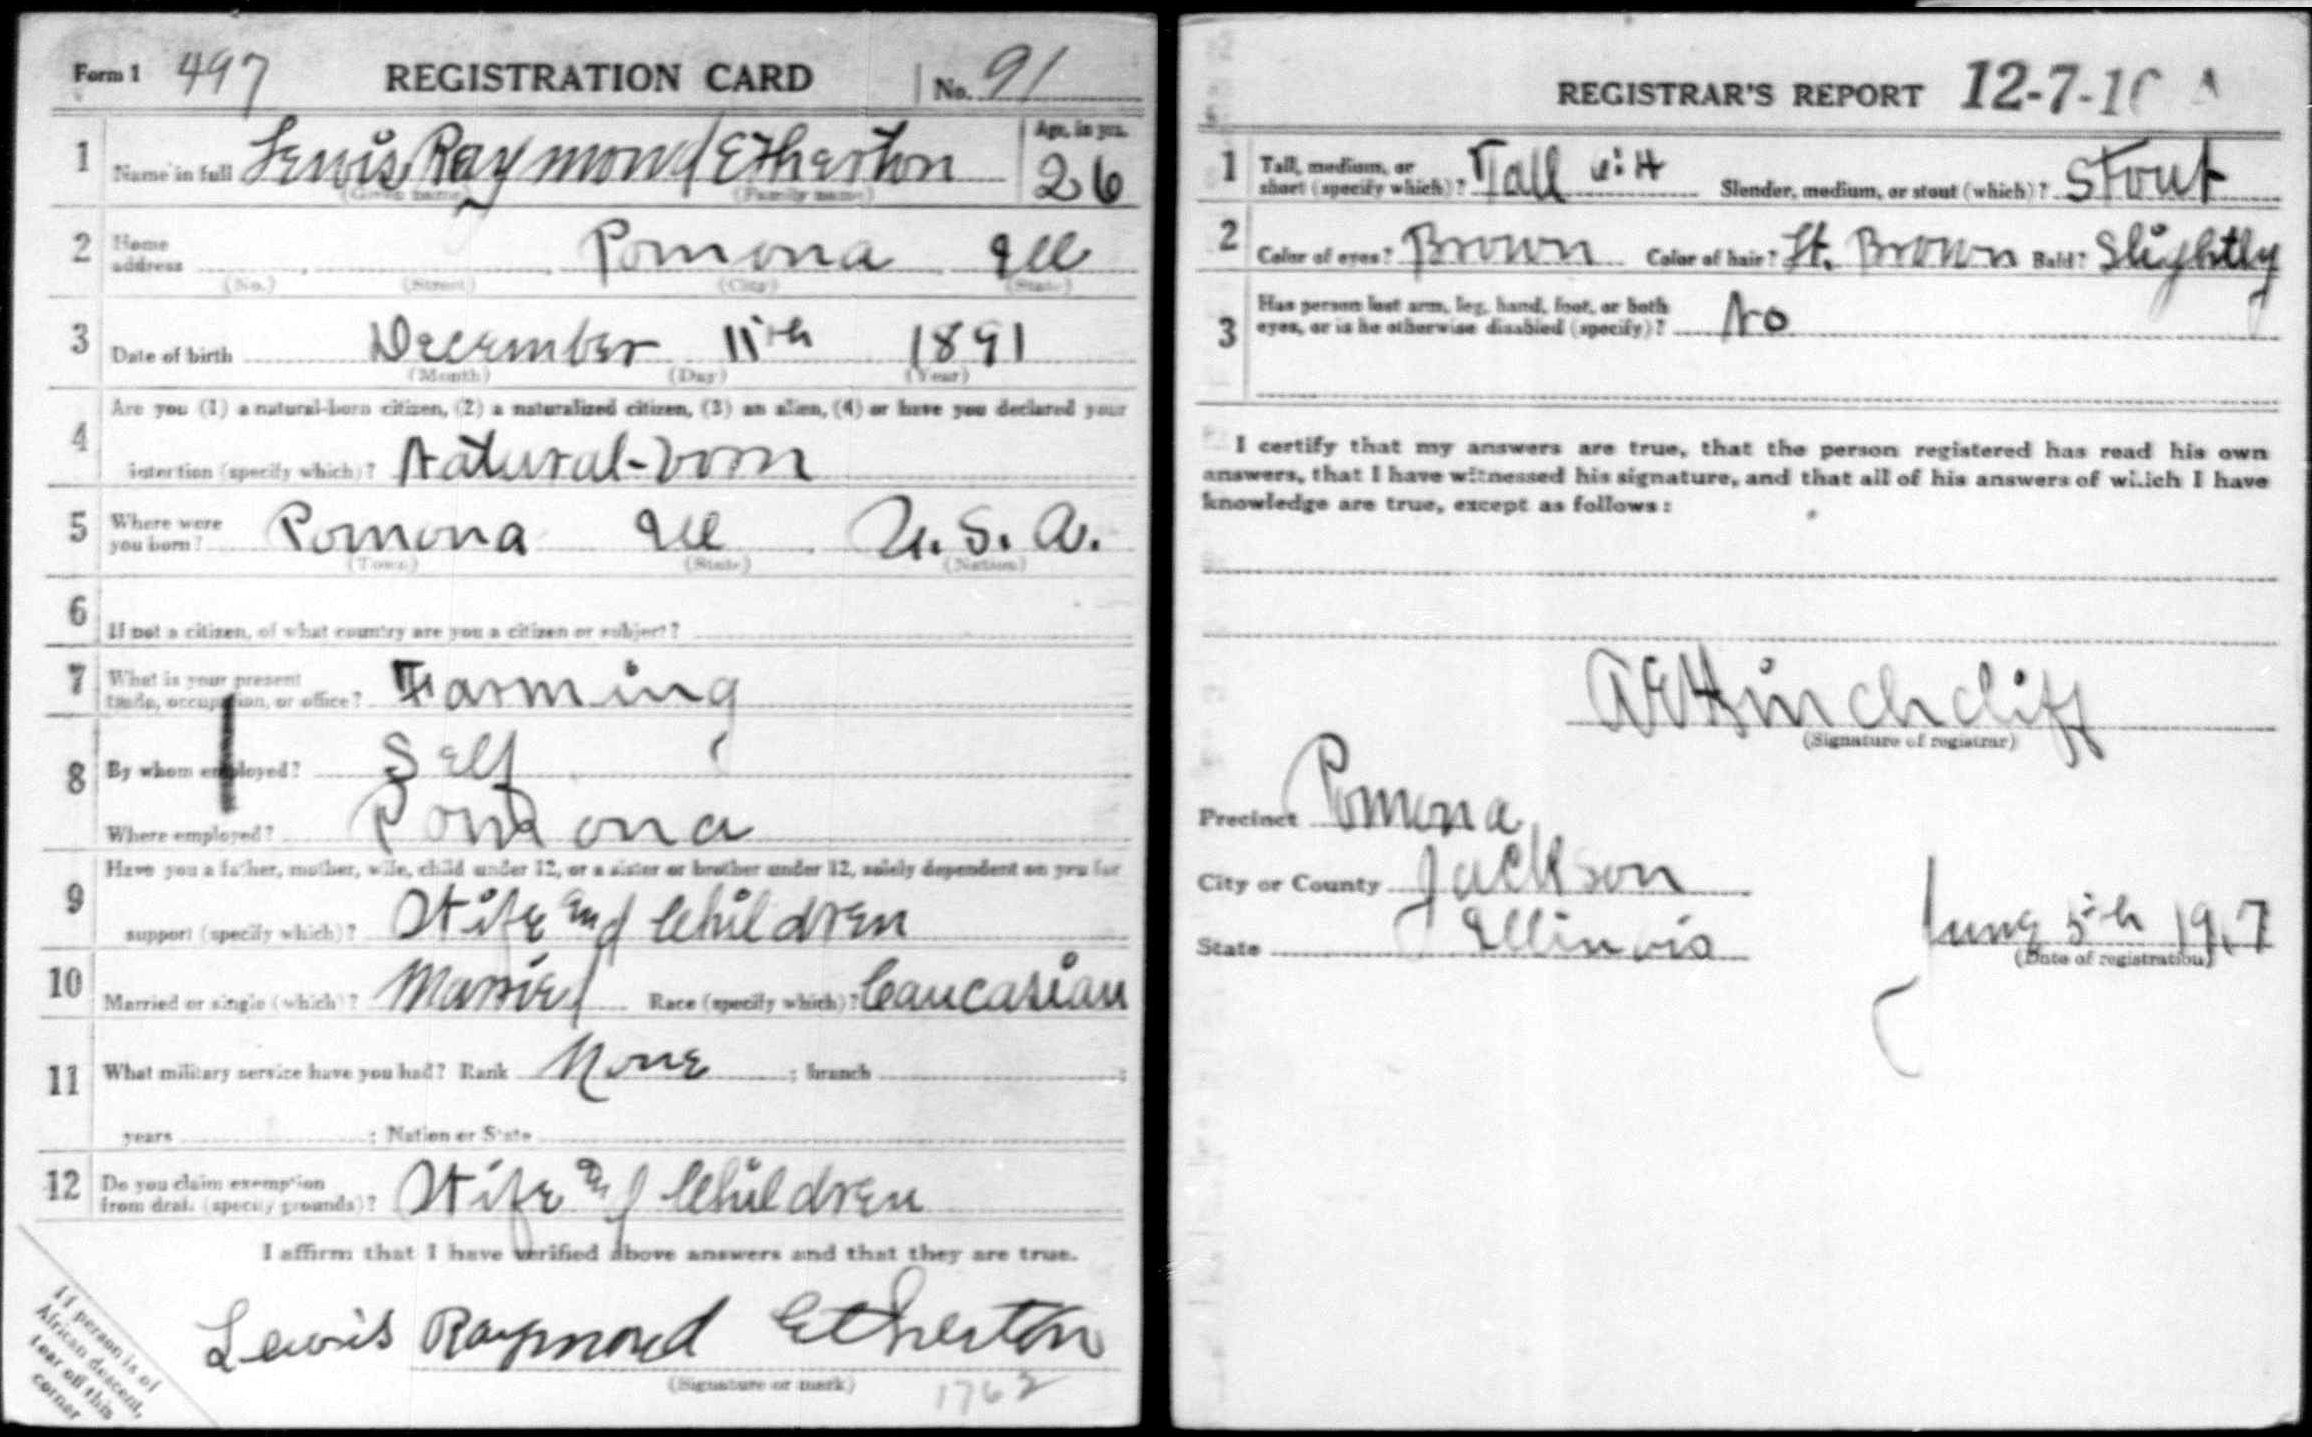 Form 1 497 REGISTRATION CARD No. 91
1 Name in full Lewis Raymond Etherton Age, in yrs. 26
(Given name) (Family name)
2 Home address Pomona Ill
(No.) (Street) (City) (State)
3 Date of birth December 11th 1891
(Month) (Day) (Year)
Are you (1) a natural-born citizen, (2) a naturalized citizen, (3) an alien, (4) or have you declared your
4 intention (specify which)? Natural-born
5 Where were you born? Pomona Ill U.S.A.
(Town) (State) (Nation)
6 If not a citizen, of what country are you a citizen or subject?
7 What is your present trade, occupation, or office? Farming
8 By whom employed? Self
Where employed? Pomona
Have you a father, mother, wife, child under 12, or a sister or brother under 12, solely dependent on you for
9 support (specify which)? Wife and Children
10 Married or single (which)? Married Race (specify which)? Caucasian
11 What military service have you had? Rank None ; branch ;
years ; Nation or State
12 Do you claim exemption from draft (specify grounds)? Wife and Children
I affirm that I have verified above answers and that they are true.
Lewis Raymond Etherton
(Signature or mark) 1762
If person is of
African descent,
tear off this
corner
REGISTRAR'S REPORT 12-7-10 A
1 Tall, medium, or short (specify which)? Tall Slender, medium, or stout (which)? Stout
2 Color of eyes? Brown Color of hair? Lt. Brown Bald? Slightly
3 Has person lost arm, leg, hand, foot, or both eyes, or is he otherwise disabled (specify)? No
I certify that my answers are true, that the person registered has read his own
answers, that I have witnessed his signature, and that all of his answers of which I have
knowledge are true, except as follows:
A E Hinchcliff
(Signature of registrar)
Precinct Pomona
City or County Jackson
State Illinois June 5th 1917
(Date of registration)